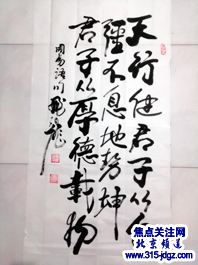 天行健君子以自
强不息地势坤
君子以厚德载物
周易语句
焦点关注网
北京频道
www.315-jdgz.com